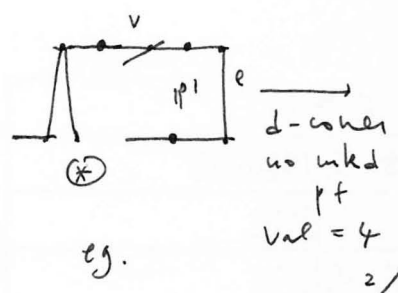 v
ℙ¹
e
*
d-cover
no mkd
pt
val = 4
eg.
2/